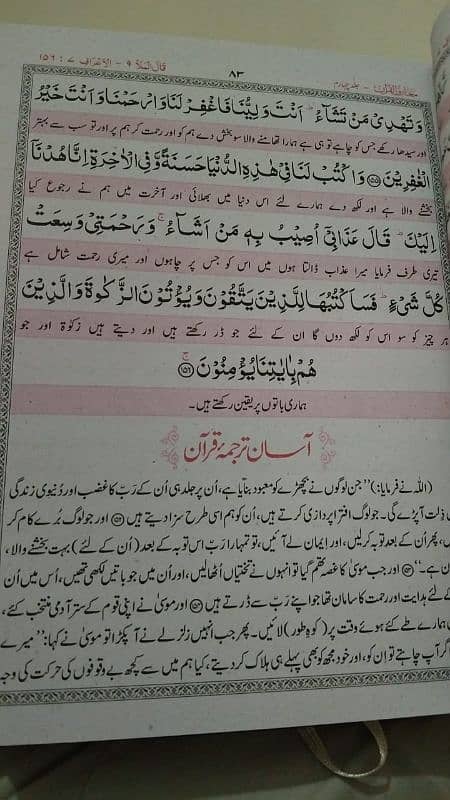 قال الملأ ۹ - الاعراف ۷ : ۱۵۶
۸۳
معارف القرآن - جلد چہارم
وَتَهْدِیْ مَنْ تَشَآءُ ؕ اَنْتَ وَلِیُّنَا فَاغْفِرْ لَنَا وَارْحَمْنَا وَاَنْتَ خَیْرُ
اور سیدھا رکھے جس کو چاہے تو ہی ہے ہمارا تھامنے والا سو بخش دے ہم کو اور رحمت کر ہم پر اور تو سب سے بہتر
الْغٰفِرِیْنَ ﴿۱۵۵﴾ وَاكْتُبْ لَنَا فِیْ هٰذِهِ الدُّنْیَا حَسَنَةً وَّفِی الْاٰخِرَةِ اِنَّا هُدْنَاۤ
بخشنے والا ہے اور لکھ دے ہمارے لئے اس دنیا میں بھلائی اور آخرت میں ہم نے رجوع کیا
اِلَیْكَ ؕ قَالَ عَذَابِیْۤ اُصِیْبُ بِهٖ مَنْ اَشَآءُ ۚ وَرَحْمَتِیْ وَسِعَتْ
تیری طرف فرمایا میرا عذاب ڈالتا ہوں میں اس کو جس پر چاہوں اور میری رحمت شامل ہے
كُلَّ شَیْءٍ ؕ فَسَاَكْتُبُهَا لِلَّذِیْنَ یَتَّقُوْنَ وَیُؤْتُوْنَ الزَّكٰوةَ وَالَّذِیْنَ
ہر چیز کو سو اس کو لکھ دوں گا ان کے لئے جو ڈر رکھتے ہیں اور دیتے ہیں زکوٰة اور جو
هُمْ بِاٰیٰتِنَا یُؤْمِنُوْنَ ۚ ﴿۱۵۶﴾
ہماری باتوں پر یقین رکھتے ہیں۔
آسان ترجمۂ قرآن
(اللہ نے فرمایا:) ”جن لوگوں نے بچھڑے کو معبود بنایا ہے، اُن پر جلد ہی اُن کے رَبّ کا غضب اور دُنیوی زندگی
ذِلت آپڑے گی۔ جو لوگ افتراپردازی کرتے ہیں، اُن کو ہم اسی طرح سزا دیتے ہیں ﴿۱۵۲﴾ اور جو لوگ بُرے کام کر
پھر اُن کے بعد توبہ کرلیں، اور ایمان لے آئیں، تو تمہارا رَبّ اس توبہ کے بعد (اُن کے لئے) بہت بخشنے والا،
ہے۔“ ﴿۱۵۳﴾ اور جب موسیٰ کا غصہ تھم گیا تو انہوں نے تختیاں اُٹھالیں، اور اُن میں جو باتیں لکھی تھیں، اُس میں اُن
کے لئے ہدایت اور رحمت کا سامان تھا جو اپنے رَبّ سے ڈرتے ہیں ﴿۱۵۴﴾ اور موسیٰ نے اپنی قوم کے ستر آدمی منتخب کئے،
ہمارے طے کئے ہوئے وقت پر (کوہِ طور) لائیں۔ پھر جب انہیں زلزلے نے آپکڑا تو موسیٰ نے کہا: ”میرے
اگر آپ چاہتے تو ان کو، اور خود مجھ کو بھی پہلے ہی ہلاک کردیتے، کیا ہم میں سے کچھ بے وقوفوں کی حرکت کی وجہ